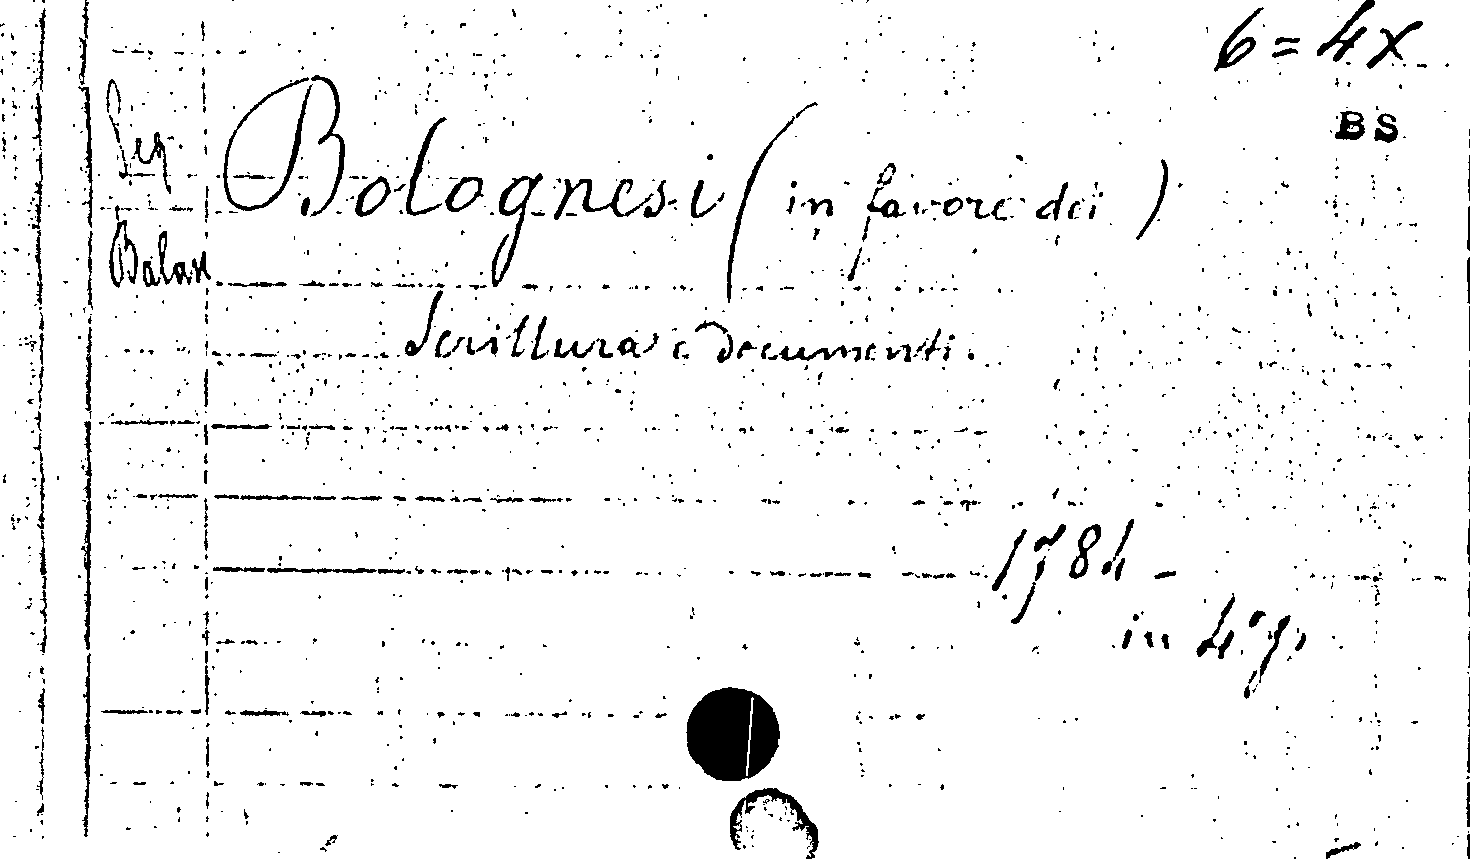 6=4x
BS
Bolognesi (in favore dei)
Balan
Scrittura e documenti.
1784 -
in 4°